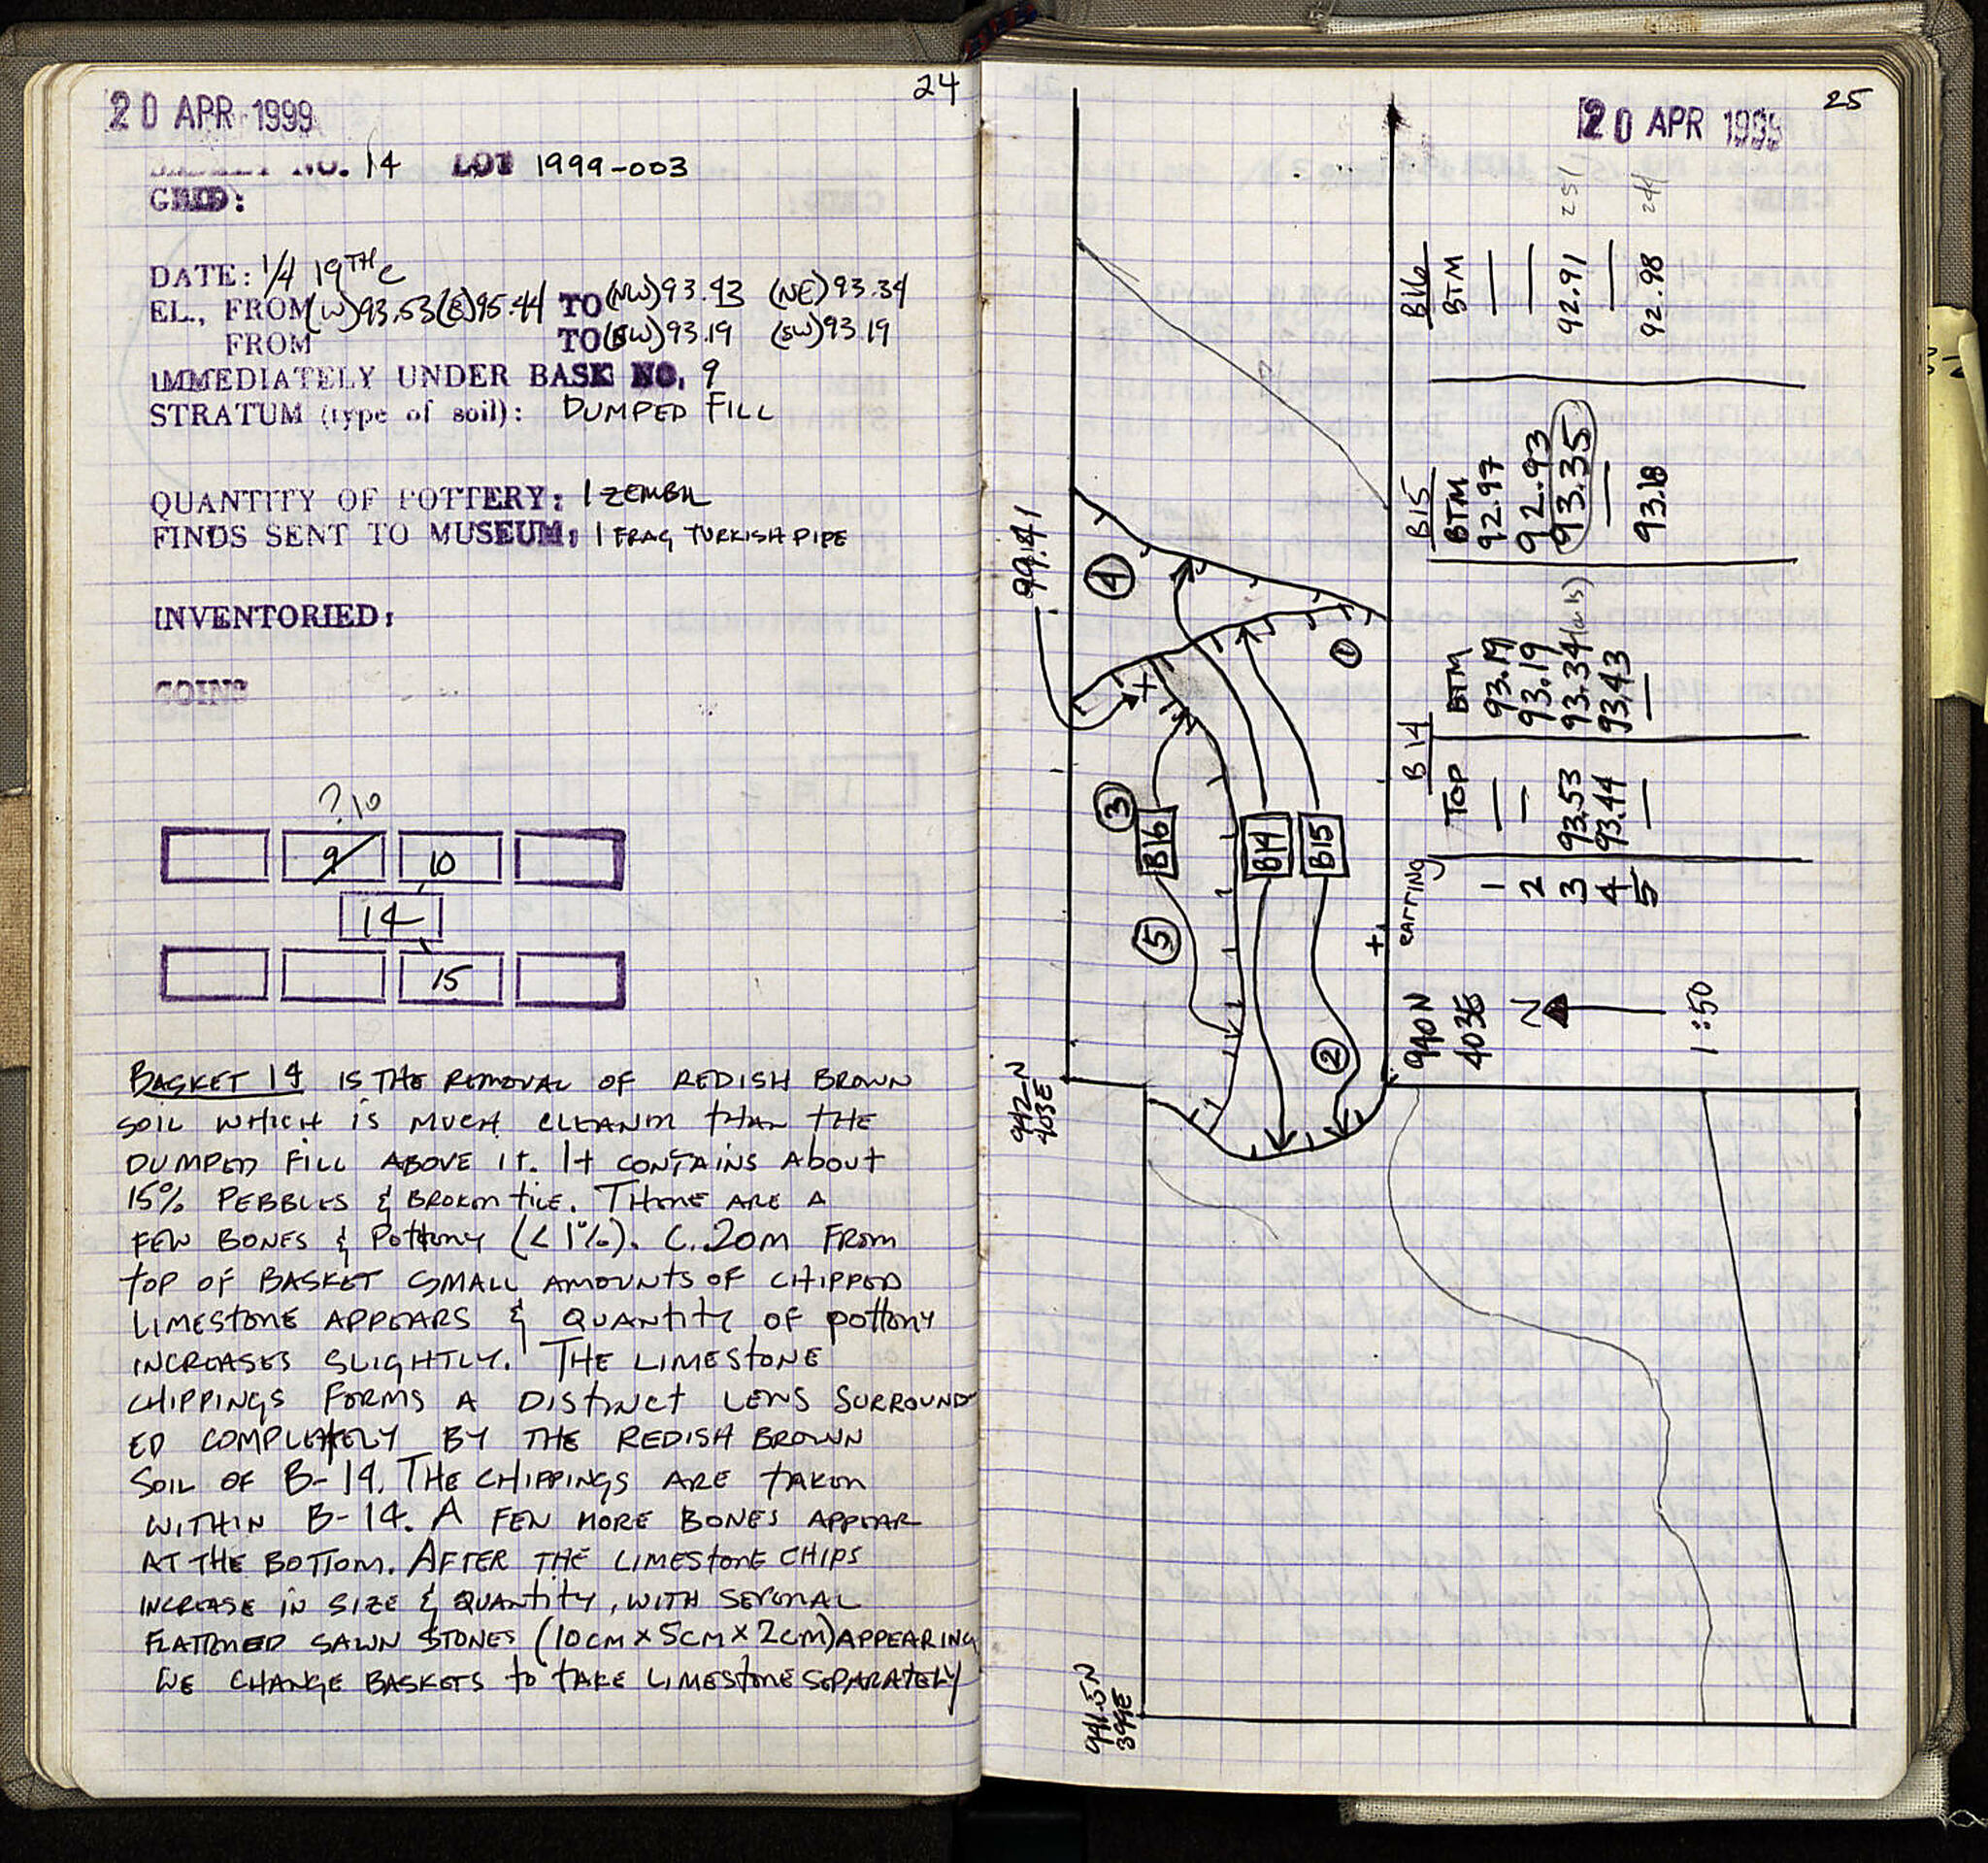 24
20 APR 1999
NO. 14 LOT 1999-003
GRID:
DATE: 1/4 19TH C
EL., FROM (W)93.53(E)95.44 TO (NW)93.43 (NE)93.34
FROM TO (SW)93.19 (SW)93.19
IMMEDIATELY UNDER BASK NO. 9
STRATUM (type of soil): DUMPED FILL
QUANTITY OF POTTERY: 1 ZEMBIL
FINDS SENT TO MUSEUM: 1 FRAG TURKISH PIPE
INVENTORIED:
COINS
? 10
9 10
14
15
BASKET 14 IS THE REMOVAL OF REDISH BROWN
SOIL WHICH IS MUCH CLEANER THAN THE
DUMPED FILL ABOVE IT. IT CONTAINS ABOUT
15% PEBBLES & BROKEN TILE. THERE ARE A
FEW BONES & POTTERY (<1%). C. .20M FROM
TOP OF BASKET SMALL AMOUNTS OF CHIPPED
LIMESTONE APPEARS & QUANTITY OF POTTERY
INCREASES SLIGHTLY. THE LIMESTONE
CHIPPINGS FORMS A DISTINCT LENS SURROUND
ED COMPLETELY BY THE REDISH BROWN
SOIL OF B-14. THE CHIPPINGS ARE TAKEN
WITHIN B-14. A FEW MORE BONES APPEAR
AT THE BOTTOM. AFTER THE LIMESTONE CHIPS
INCREASE IN SIZE & QUANTITY, WITH SEVERAL
FLATTENED SAWN STONES (10CM X 5CM X 2CM) APPEARING
WE CHANGE BASKETS TO TAKE LIMESTONE SEPARATELY
25
20 APR 1999
99.41
4
1
3
B16
B14
B15
5
2
942 N
403E
940N
403E
N
1:50
941.5N
399E
B14 B15 B16
TOP BTM BTM BTM
1 — 93.19 92.97 —
2 — 93.19 92.93 —
3 93.53 93.34 93.35 92.91 251
4 93.44 93.43 — —
5 — — 93.18 92.98